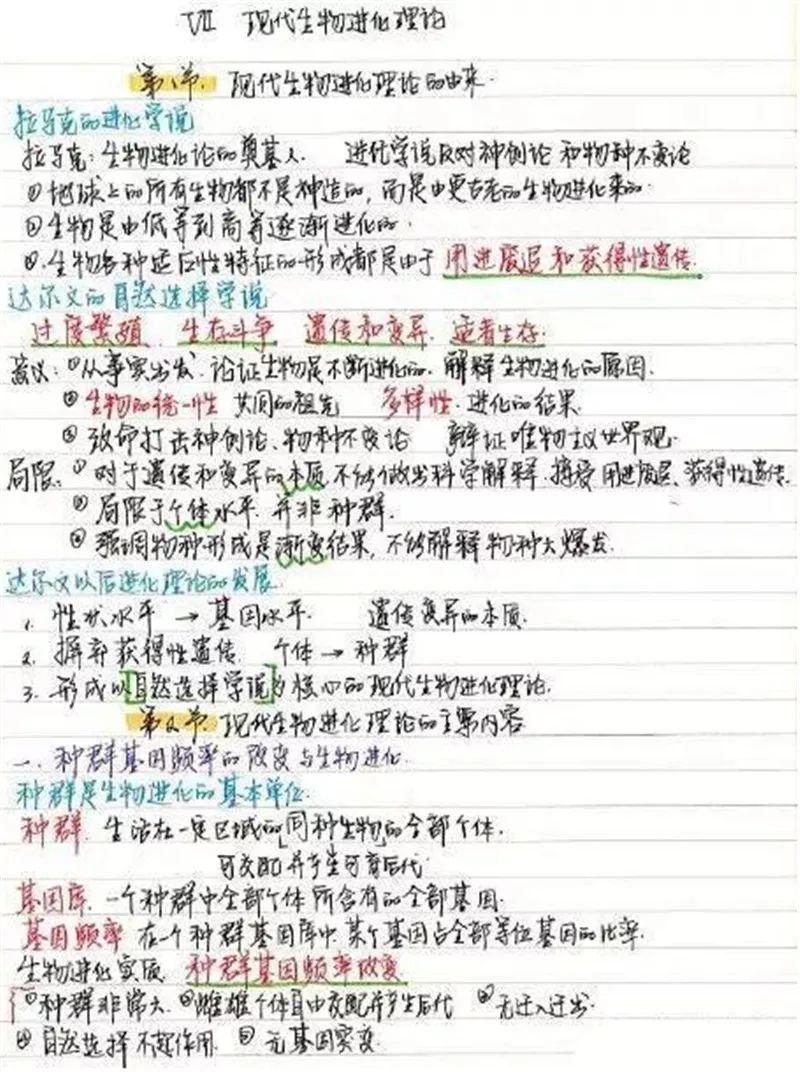 VII 现代生物进化理论
第1节. 现代生物进化理论的由来.
拉马克的进化学说
拉马克: 生物进化论的奠基人. 进化学说反对神创论和物种不变论
①地球上的所有生物都不是神造的, 而是由更古老的生物进化来的.
②生物是由低等到高等逐渐进化的.
③.生物各种适应性特征的形成都是由于用进废退和获得性遗传.
达尔文的自然选择学说
过度繁殖 生存斗争 遗传和变异. 适者生存.
意义: ①从事实出发. 论证生物是不断进化的. 解释生物进化的原因.
②生物的统一性 共同的祖先 多样性. 进化的结果.
③致命打击神创论、物种不变论 辩证唯物主义世界观.
局限: ①对于遗传和变异的本质不能做出科学解释. 接受用进废退、获得性遗传.
②局限于个体水平. 并非种群.
③强调物种形成是渐变结果, 不能解释物种大爆发.
达尔文以后进化理论的发展.
1. 性状水平 → 基因水平. 遗传变异的本质.
2. 摒弃获得性遗传. 个体 → 种群
3. 形成以[自然选择学说]为核心的现代生物进化理论.
第2节. 现代生物进化理论的主要内容
一. 种群基因频率的改变与生物进化.
种群是生物进化的基本单位.
种群. 生活在一定区域的[同种生物]的全部个体.
可交配并产生可育后代.
基因库. 一个种群中全部个体所含有的全部基因.
基因频率 在一个种群基因库中. 某个基因占全部等位基因的比率.
生物进化实质 种群基因频率改变
①种群非常大. ②雌雄个体自由交配并产生后代 ③无迁入迁出.
④自然选择不起作用. ⑤无基因突变.